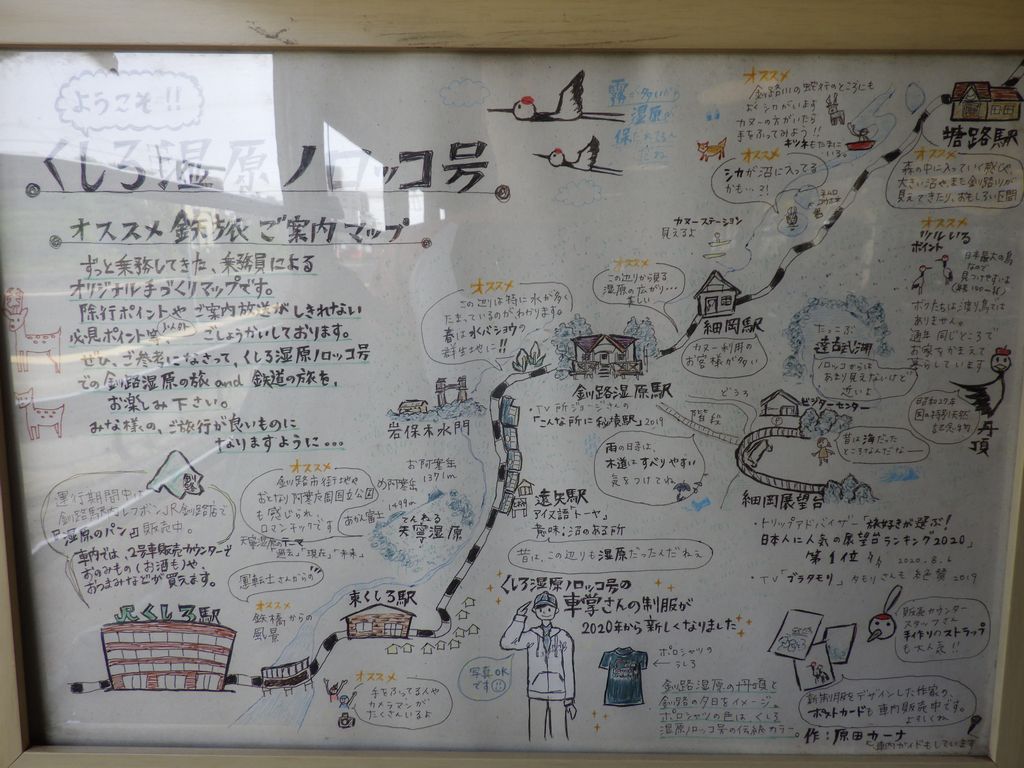 ようこそ!!
くしろ湿原ノロッコ号
オススメ 鉄旅 ご案内マップ
ずっと乗務してきた、乗務員による
オリジナル手づくりマップです。
徐行ポイントや ご案内放送がしきれない
必見ポイント等 ごしょうかいしております。
ぜひ、ご参考になさって、くしろ湿原ノロッコ号
での釧路湿原の旅 and 鉄道の旅を、
お楽しみ下さい。
みな様の、ご旅行が良いものに
なりますように…
運行期間中は
釧路駅内レフボンJR釧路店で
『湿原のパン』販売中。
車内では、2号車販売カウンターで
おのみもの(お酒も)や、
おつまみなどが買えます。
JRくしろ駅
オススメ
釧路市街地や
おとなり阿寒国立公園
も感じられ、
ロマンチックです
天寧湿原のテーマ
「過去」「現在」「未来」
運転士さんからの
オススメ
鉄橋からの
風景
オススメ
手をふってる人や
カメラマンが
たくさんいるよ
東くしろ駅
お阿寒岳
1371m
め阿寒岳
1499m
あかん富士
てんねる
天寧湿原
岩保木水門
オススメ
この辺りは特に水が多く
たまっているのがわかります。
春は水バショウの
群生地に!!
オススメ
この辺りから見る
湿原の広がり…
美しい
釧路湿原駅
TV所ジョージさんの
「こんな所に秘境駅」2019
雨の日は、
木道はすべりやすい
気をつけてね
遠矢駅
アイヌ語「トーヤ」
意味:沼のある所
昔は、この辺りも湿原だったんだねぇ
霧が多いから
湿原が
保たれる
オススメ
釧路川の蛇行のところにも
よくシカがいます
カヌーの方がいたら
手をふってみよう!!
キツネもたまに
いる。
オススメ
シカが沼に入ってる
かも…?!
カヌーステーション
見えるよ
細岡駅
カヌー利用の
お客様が多い
塘路駅
オススメ
森の中に入っていく感じや、
大きい沼や、また釧路川が
見えてきたり、おもしろい区間
オススメ
ツルいる
ポイント
日本最大の鳥
なので
見つけやすいよ
ボクたちは渡り鳥では
ありません。
通年 同じところで
お家をかまえて
暮らしています
昭和27年
国の特別天然
記念物
丹頂
たっこぶ
達古武湖
ノロッコからは
あまり見えないけど
近いよ
どうろ
階段
ビジターセンター
昔は海だった
ところなんだなー
細岡展望台
・トリップアドバイザー「旅好きが選ぶ!
日本人に人気の展望台ランキング2020」
第1位!!
2020.8.6
・TV「ブラタモリ」タモリさんも絶賛 2019
くしろ湿原ノロッコ号の
車掌さんの制服が
2020年から新しくなりました
写真OK
です!!
ポロシャツの
うしろ
釧路湿原の丹頂と
釧路の夕日をイメージ。
ポロシャツの色は、くしろ
湿原ノロッコ号の伝統カラー。
販売カウンター
スタッフさん
手作りのストラップ
も大人気!!
新制服をデザインした作家の、
ポストカードも車内販売中です。
よろしくね
作:原田カーナ
車内ガイドもしています